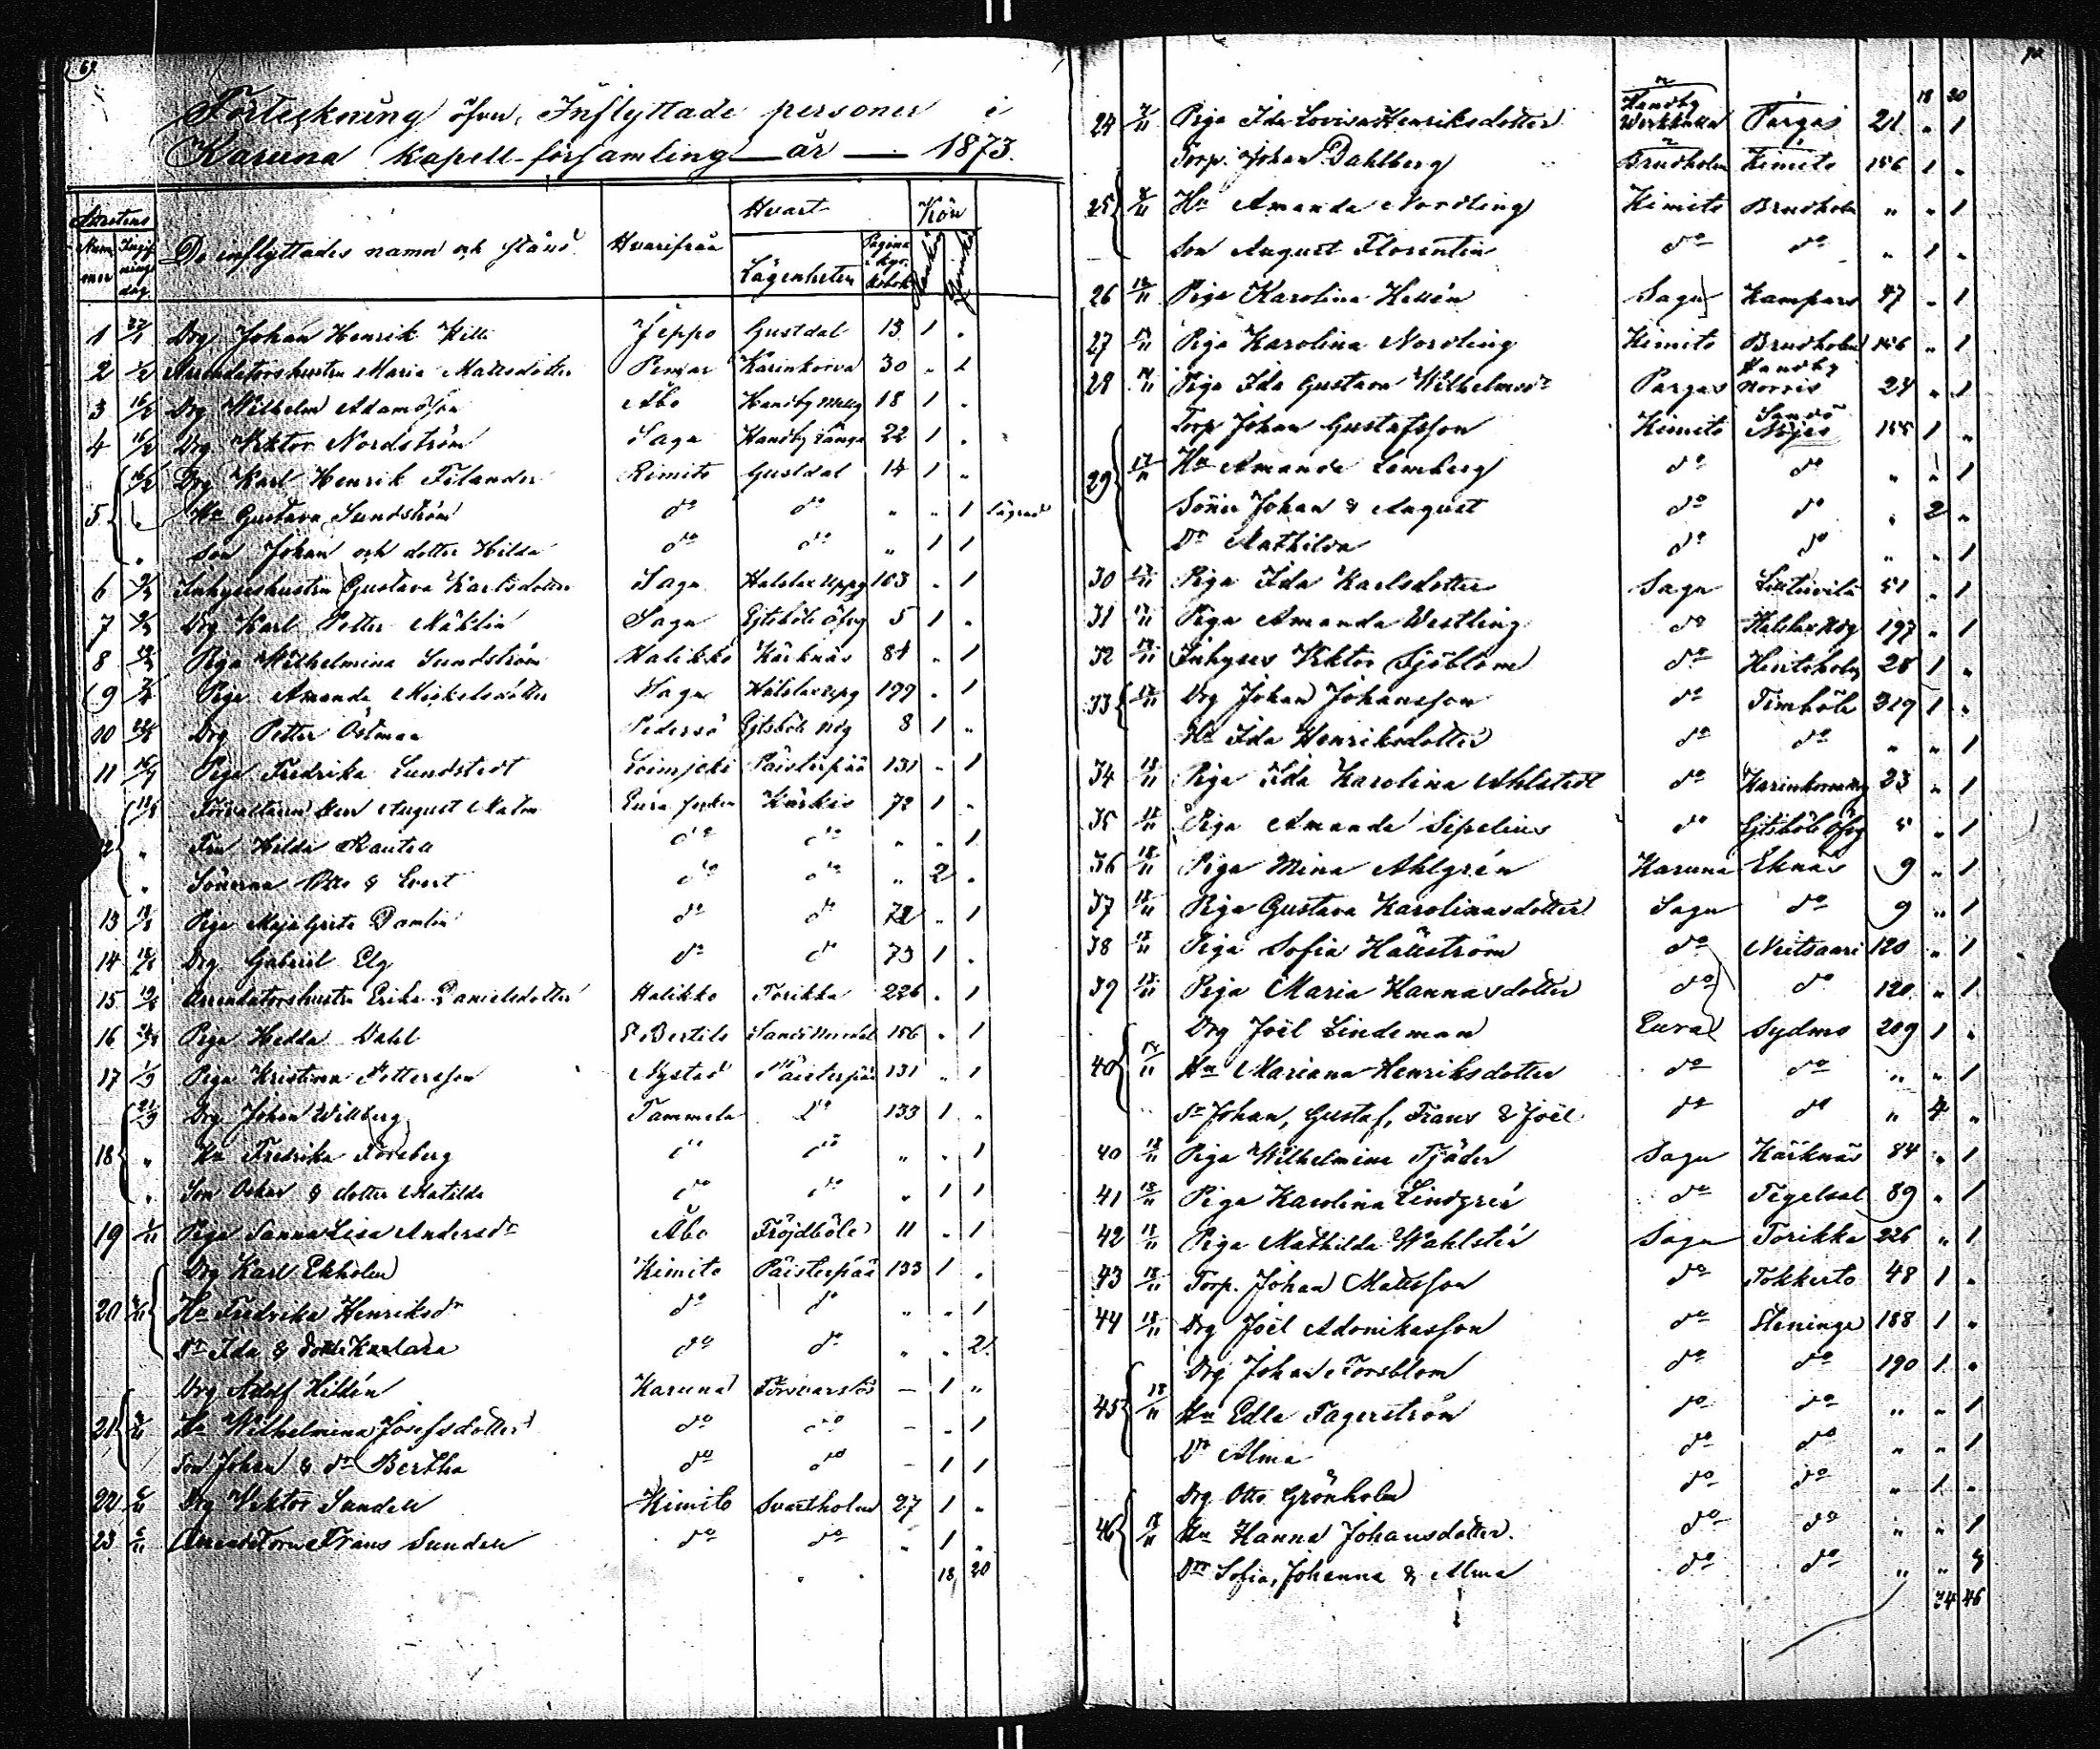 Förteckning öfver Inflyttade personer i
Karuna Kapell-församling år 1873.
Attestens Nummer Ingifnings dag De inflyttades namn och stånd Hvarifrån Hvart Lägenheten Pagina i kyrkobok Kön Mankön Qvinkön
1 27/1 Drg Johan Henrik Killi Jeppo Gustdal 13 1 "
2 Arrendatorshustru Maria Mattsdotter Pemar Karinkorva 30 " 1
3 Drg Wilhelm Adamsson Åbo Kandby 18 1 "
4 Drg Viktor Nordström Sagu Kandby Långa 22 1 "
5 Drg Karl Henrik Filander Rimito Gustdal 14 1 "
" Hu Gustava Sundström do do " " 1
" Son Johan och dotter Hilda do do " 1 1
6 Inhyseshustru Gustava Karlsdotter Sagu Halslax Uppg 163 " 1
7 Drg Karl Petter Mählin Sagu Gjtsböle Öfvg 5 1 "
8 Piga Wilhelmina Sundström Halikko Kärknäs 84 " 1
9 Piga Amanda Mickelsdotter Sagu Halslax Uppg 197 " 1
10 Drg Petter Östman Pedersö Gjtsböle Ndg 8 1 "
11 Piga Fredrika Lundstedt Loimjoki Päisterpää 131 " 1
12 Förvaltaren Herr August Malm Eura Kärkis 72 1 "
" Fru Hilda Rautell do do " " 1
" Sönerna Otto & Evert do do " 2 "
13 Piga Maja Greta Damlin do do 72 " 1
14 Drg Gabriel Elg do do 73 1 "
15 Arrendatorshustru Erika Danielsdotter Halikko Torikka 226 " 1
16 Piga Hedda Dahl St Bertils Sandö 156 " 1
17 Piga Kristina Pettersson Nystad Päisterpää 131 " 1
18 Drg Johan Willberg Tammela do 133 1 "
" Hu Fredrika Forsberg do do " " 1
" Son Oskar & dotter Matilda do do " 1 1
19 Piga Sanna Lisa Andersdr Åbo Fröjdböle 11 " 1
20 Drg Karl Ekholm Kimito Päisterpää 133 1 "
Hu Fredrika Henriksdr do do " " 1
Dr Ida & Karlara do do " " 2
21 Drg Adolf Hildén Karuna Försvarslös — 1 "
Hu Wilhelmina Josefsdotter do do — " 1
Son Johan & dr Bertha do do — 1 1
22 Drg Viktor Sundell Kimito Svartholm 27 1 "
23 Arrendatorn Frans Sundell do do " 1 "
18 20
18 20
24 Piga Ida Lovisa Henriksdotter Pargas 21 " 1
25 Torp. Johan Dahlberg Brudholm Kimito 156 1 "
Hu Amanda Nordling Kimito Brudholm " " 1
Son August Florentin do do " 1 "
26 Piga Karolina Hellén Sagu Kampars 47 " 1
27 Piga Karolina Nordling Kimito Brudholm 156 " 1
28 Piga Ida Gustava Wilhelmsdr Pargas Kandby Norris 24 " 1
29 17/11 Torp Johan Gustafsson Kimito Sandö Nöjes 155 1 "
Hu Amanda Lemberg do do " " 1
Söner Johan & August do do " 2 "
Dr Mathilda do do " " 1
30 Piga Ida Karlsdotter Sagu 51 " 1
31 Piga Amanda Westling do Halslax Ndg 197 " 1
32 Inhyses Viktor Sjöblom do 28 1 "
33 Drg Johan Johansson do Timböle 219 1 "
Hu Ida Henriksdotter do do " " 1
34 18/11 Piga Ida Karolina Ahlstedt do Karinkorva 23 " 1
35 18/11 Piga Amanda Sipelius do Gjtsböle Öfvg 5 " 1
36 18/11 Piga Mina Ahlgrén Karuna Eknäs 9 " 1
37 18/11 Piga Gustava Karolinasdotter Sagu do 9 " 1
38 18/11 Piga Sofia Hällström do Neitsaari 120 " 1
39 18/11 Piga Maria Hannasdotter do do 120 " 1
40 Drg Joël Lindeman Eura Sydmo 209 1 "
Hu Mariana Henriksdotter do do " " 1
Sr Johan, Gustaf, Frans & Joël do do " 4 "
40 18/11 Piga Wilhelmina Tjäder Sagu Kärknäs 84 " 1
41 18/11 Piga Karolina Lindgrén do Tegelsal 89 " 1
42 18/11 Piga Mathilda Wahlstén Sagu Torikka 226 " 1
43 18/11 Torp. Johan Mattsson do Tokkerto 48 1 "
44 18/11 Drg Joël Adonikasson do Steninge 188 1 "
45 18/11 Drg Johan Forsblom do do 190 1 "
Hu Edla Fagerström do do " " 1
Dr Alma do do " " 1
46 18/11 Drg Otto Grönholm do do " 1 "
Hu Hanna Johansdotter. do do " " 1
Drr Sofia, Johanna & Alma do do " " 3
34 46